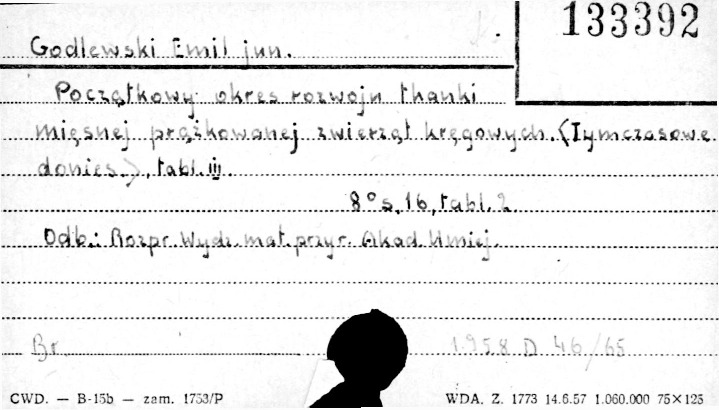 133392
Godlewski Emil jun.
Początkowy okres rozwoju tkanki
mięsnej prążkowanej zwierząt kręgowych. (Tymczasowe
donies.), tabl. III.
8° s. 16, tabl. 2
Odb.: Rozpr. Wydz. mat. przyr. Akad. Umiej.
Br 1958 D 46/65
CWD. — B-15b — zam. 1753/P WDA. Z. 1773 14.6.57 1.060.000 75×125